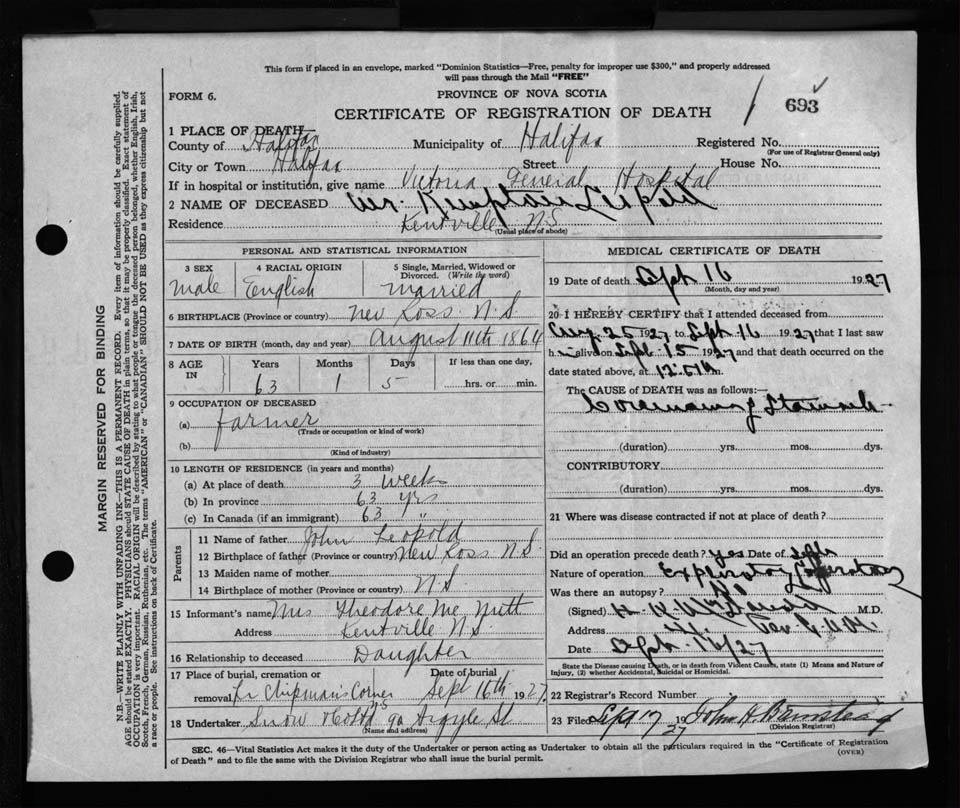 This form if placed in an envelope, marked "Dominion Statistics—Free, penalty for improper use $300," and properly addressed
will pass through the Mail "FREE"
FORM 6.
PROVINCE OF NOVA SCOTIA
CERTIFICATE OF REGISTRATION OF DEATH
693
1 PLACE OF DEATH
County of Halifax Municipality of Halifax Registered No.
(For use of Registrar General only)
City or Town Halifax Street House No.
If in hospital or institution, give name Victoria General Hospital
2 NAME OF DECEASED Mr. Kempton Leopold
Residence Kentville N.S
(Usual place of abode)
PERSONAL AND STATISTICAL INFORMATION
3 SEX 4 RACIAL ORIGIN 5 Single, Married, Widowed or
Divorced. (Write the word)
male English married
6 BIRTHPLACE (Province or country) New Ross N.S
7 DATE OF BIRTH (month, day and year) August 11th 1864
8 AGE IN Years Months Days If less than one day,
63 1 5 hrs. or min.
9 OCCUPATION OF DECEASED
(a) farmer
(Trade or occupation or kind of work)
(b)
(Kind of industry)
10 LENGTH OF RESIDENCE (in years and months)
(a) At place of death 3 weeks
(b) In province 63 yrs
(c) In Canada (if an immigrant) 63 "
Parents
11 Name of father John Leopold
12 Birthplace of father (Province or country) New Ross N.S.
13 Maiden name of mother
14 Birthplace of mother (Province or country) N.S
15 Informant's name Mrs Theodore Mc Nutt
Address Kentville N.S.
16 Relationship to deceased Daughter
17 Place of burial, cremation or Date of burial
removal Chipman's Corner N.S Sept 16th 1927
18 Undertaker Snow & Co Ltd 90 Argyle St
(Name and address)
MEDICAL CERTIFICATE OF DEATH
19 Date of death Sept 16 1927
(Month, day and year)
20 I HEREBY CERTIFY that I attended deceased from
Aug. 25 1927 to Sept. 16 1927 that I last saw
h im alive on Sept. 15 1927 and that death occurred on the
date stated above, at m.
The CAUSE of DEATH was as follows:—
Carcinoma of Stomach
(duration) yrs. mos. dys.
CONTRIBUTORY
(duration) yrs. mos. dys.
21 Where was disease contracted if not at place of death?
Did an operation precede death? yes Date of
Nature of operation Exploratory
Was there an autopsy? No
(Signed) M.D.
Address
Date Sept. 16/27
State the Disease causing Death, or in death from Violent Causes, state (1) Means and Nature of
Injury, (2) whether Accidental, Suicidal or Homicidal.
22 Registrar's Record Number
23 Filed 17 1927 John
(Division Registrar)
SEC. 46—Vital Statistics Act makes it the duty of the Undertaker or person acting as Undertaker to obtain all the particulars required in the "Certificate of Registration
of Death" and to file the same with the Division Registrar who shall issue the burial permit.
(OVER)
MARGIN RESERVED FOR BINDING
N.B.—WRITE PLAINLY WITH UNFADING INK—THIS IS A PERMANENT RECORD. Every item of information should be carefully supplied.
AGE should be stated EXACTLY. PHYSICIANS should STATE CAUSE OF DEATH in plain terms, so that it may be properly classified. Exact statement of
OCCUPATION is very important. RACIAL ORIGIN will be described by stating to what people or tongue the deceased person belonged, whether English, Irish,
Scotch, French, German, Russian, Ruthenian, etc. The terms "AMERICAN" or "CANADIAN" SHOULD NOT BE USED as they express citizenship but not
a race or people. See instructions on back of Certificate.